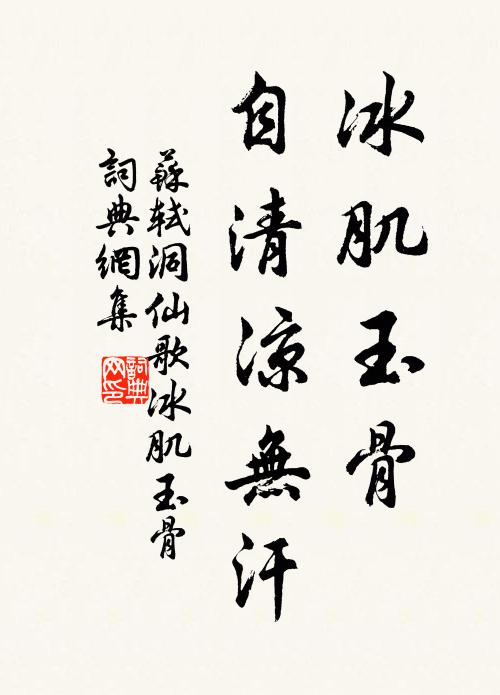 冰肌玉骨
自清涼無汗
蘇軾洞仙歌冰肌玉骨
詞典網集
詞典網印